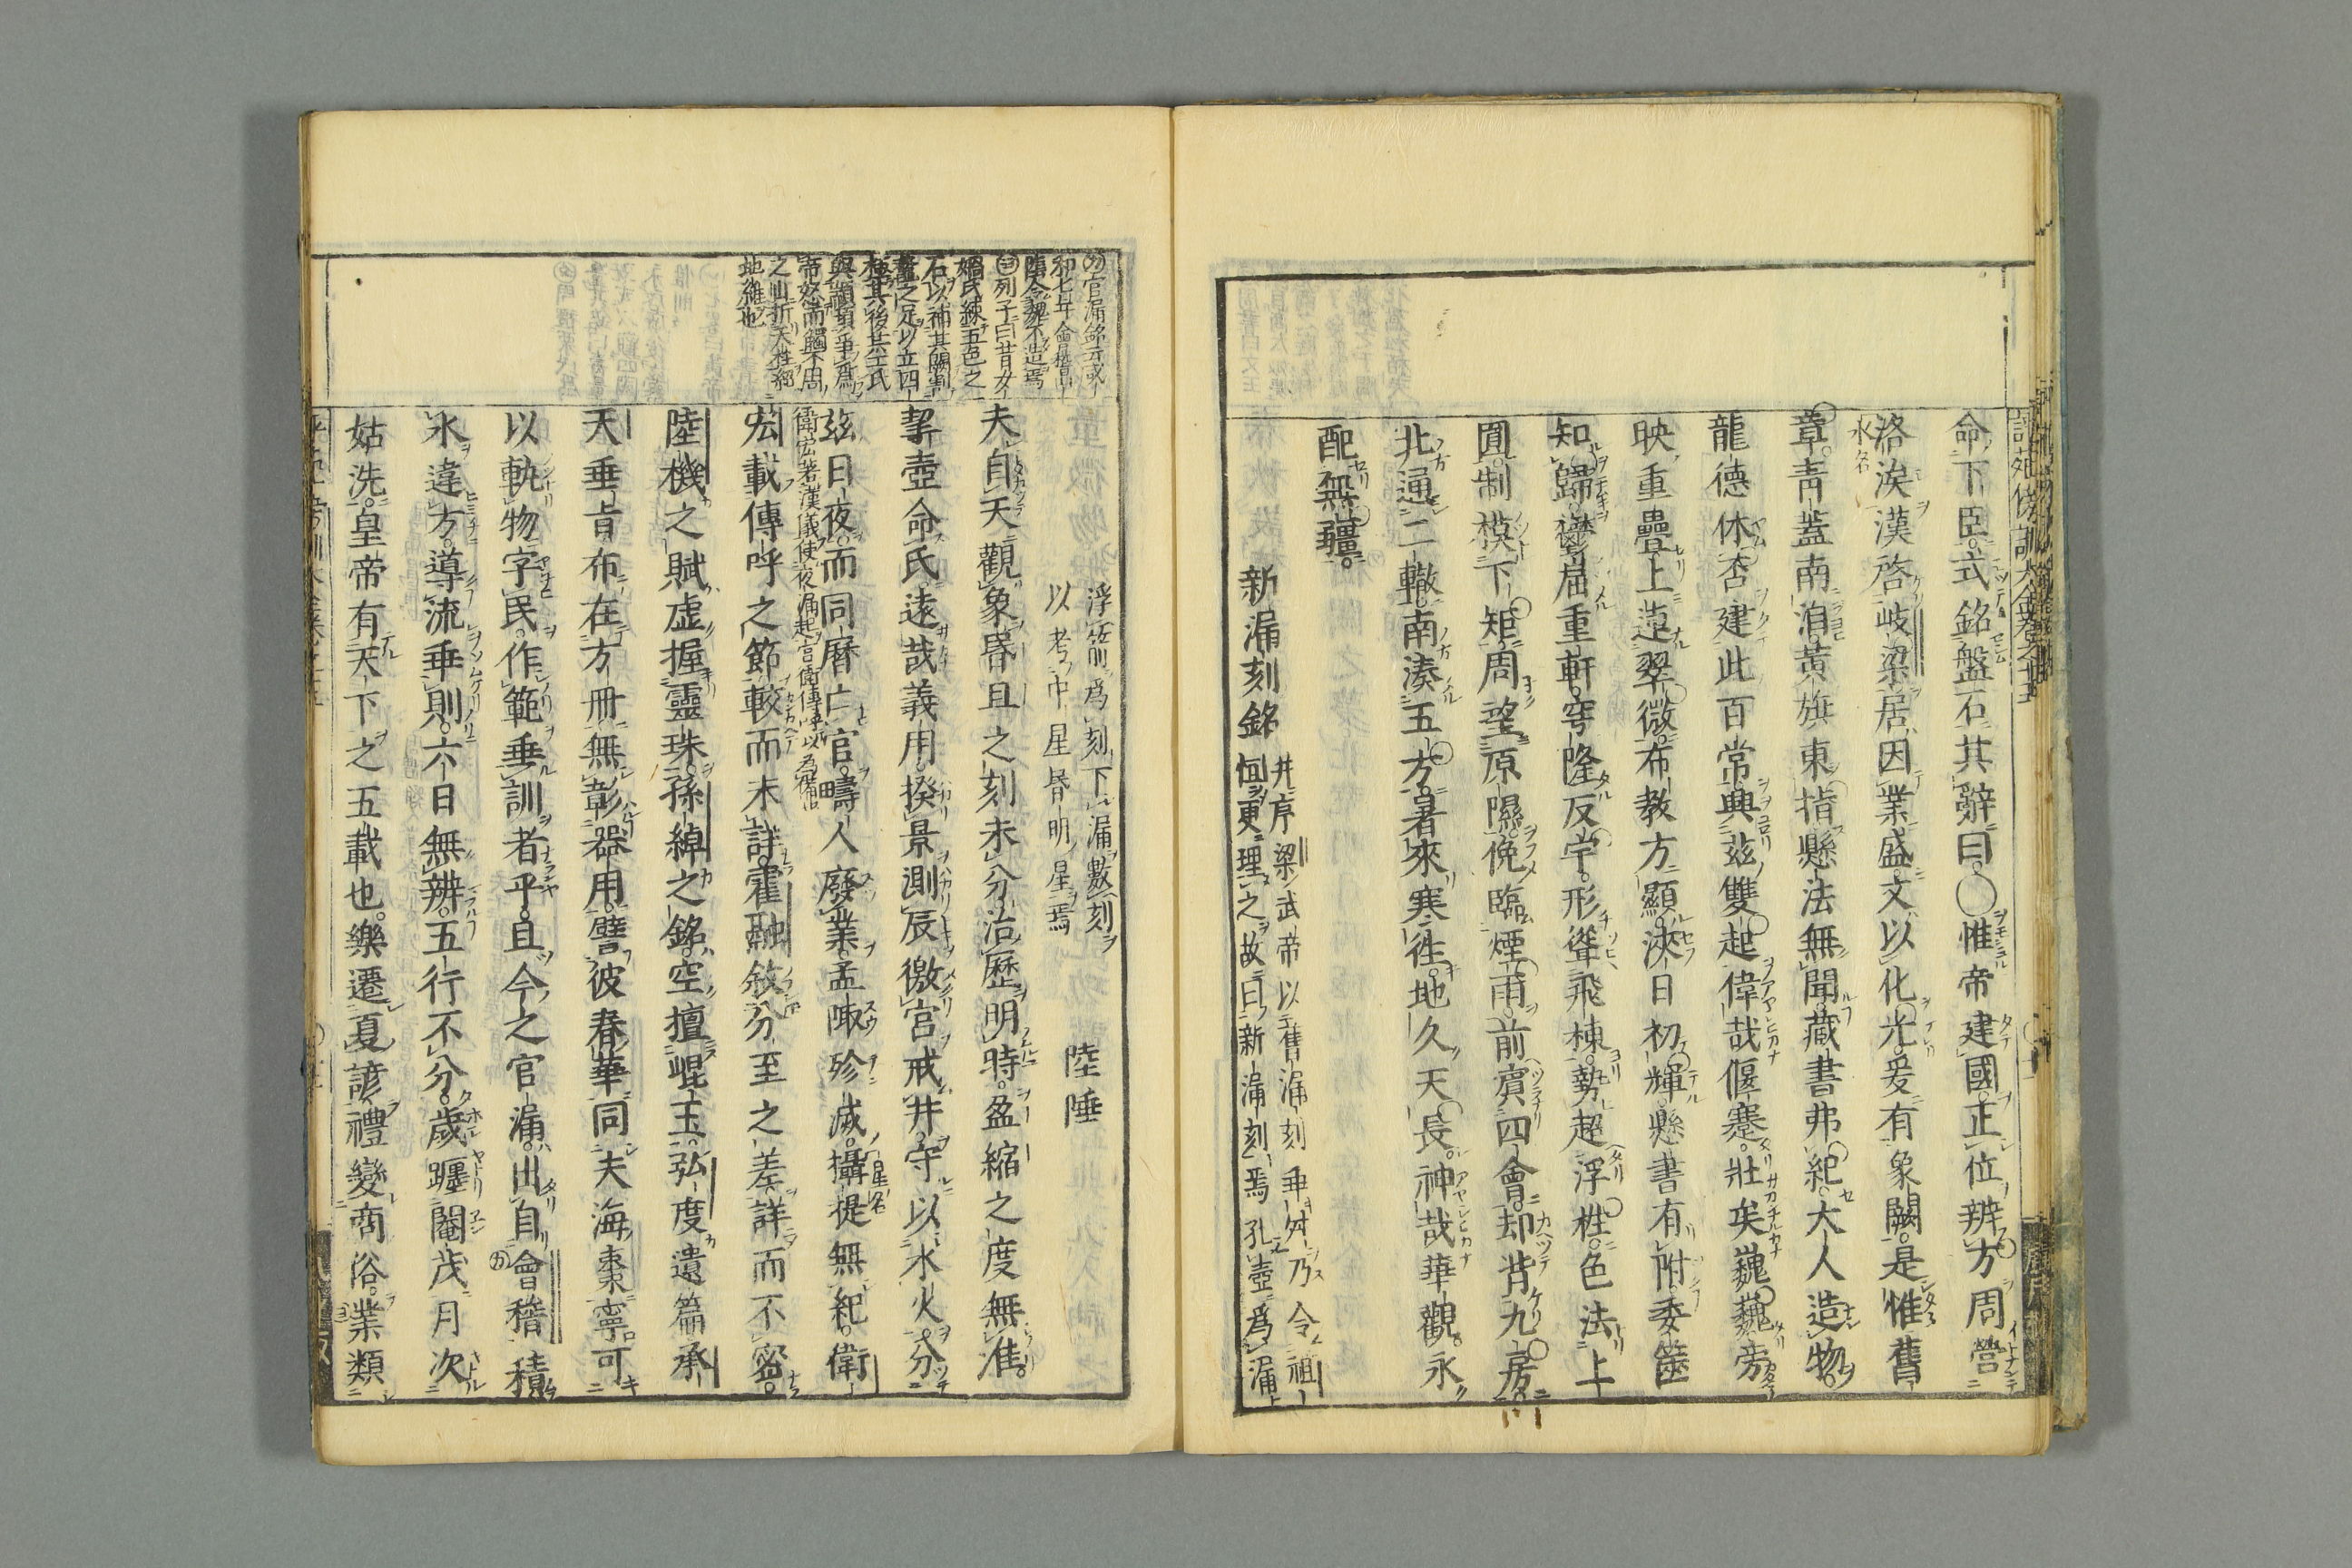 命下臣式銘盤石其辭曰〇惟帝建國正位辨方周營
洛涘漢啓岐梁居因業盛文以化光爰有象闕是惟舊
水名
章青蓋南洎黃旗東指懸法無聞藏書弗紀大人造物
龍德休否建此百常興茲雙起偉哉偃蹇壯矣巍巍旁
映重疊上造翠微布教方顯浹日初輝懸書有附委篋
知歸鬱屈重軒穹隆反宇形聳飛棟勢超浮柱色法上
圓制模下矩周望原隰俛臨煙雨前賓四會却背九房
北通二轍南湊五方暑來寒往地久天長神哉華觀永
配無疆
新漏刻銘
并序
梁武帝以舊漏刻乖舛乃令祖
恒更理之故曰新漏刻焉孔壺爲漏
浮箭爲刻下漏數刻
以考中星昏明星焉
陸倕
夫自天觀象昏旦之刻未分治歷明時盈縮之度無准
挈壺命氏遠哉義用揆景測辰徼宮戒井守以水火分
茲日夜而同曆亡官疇人廢業孟陬殄滅攝提無紀衛
星名
衛宏著漢儀使夜漏起宮衛傳呼以爲備
宏載傳呼之節較而未詳霍融敘分至之差詳而不密
陸機之賦虛握靈珠孫綽之銘空擅崐玉弘度遺篇承
天垂旨布在方冊無彰器用譬彼春華同夫海棗寧可
以軌物字民作範垂訓者乎且今之官漏出自會稽積
水違方導流垂則六日無辨五行不分歲躔閹茂月次
姑洗皇帝有天下之五載也樂遷夏諺禮變商俗業類
列子曰昔女
媧氏練五色之
石以補其闕斷
鼇之足以立四
極其後共工氏
與顓頊爭爲
帝怒而觸不周
之山折天柱絕
地維也